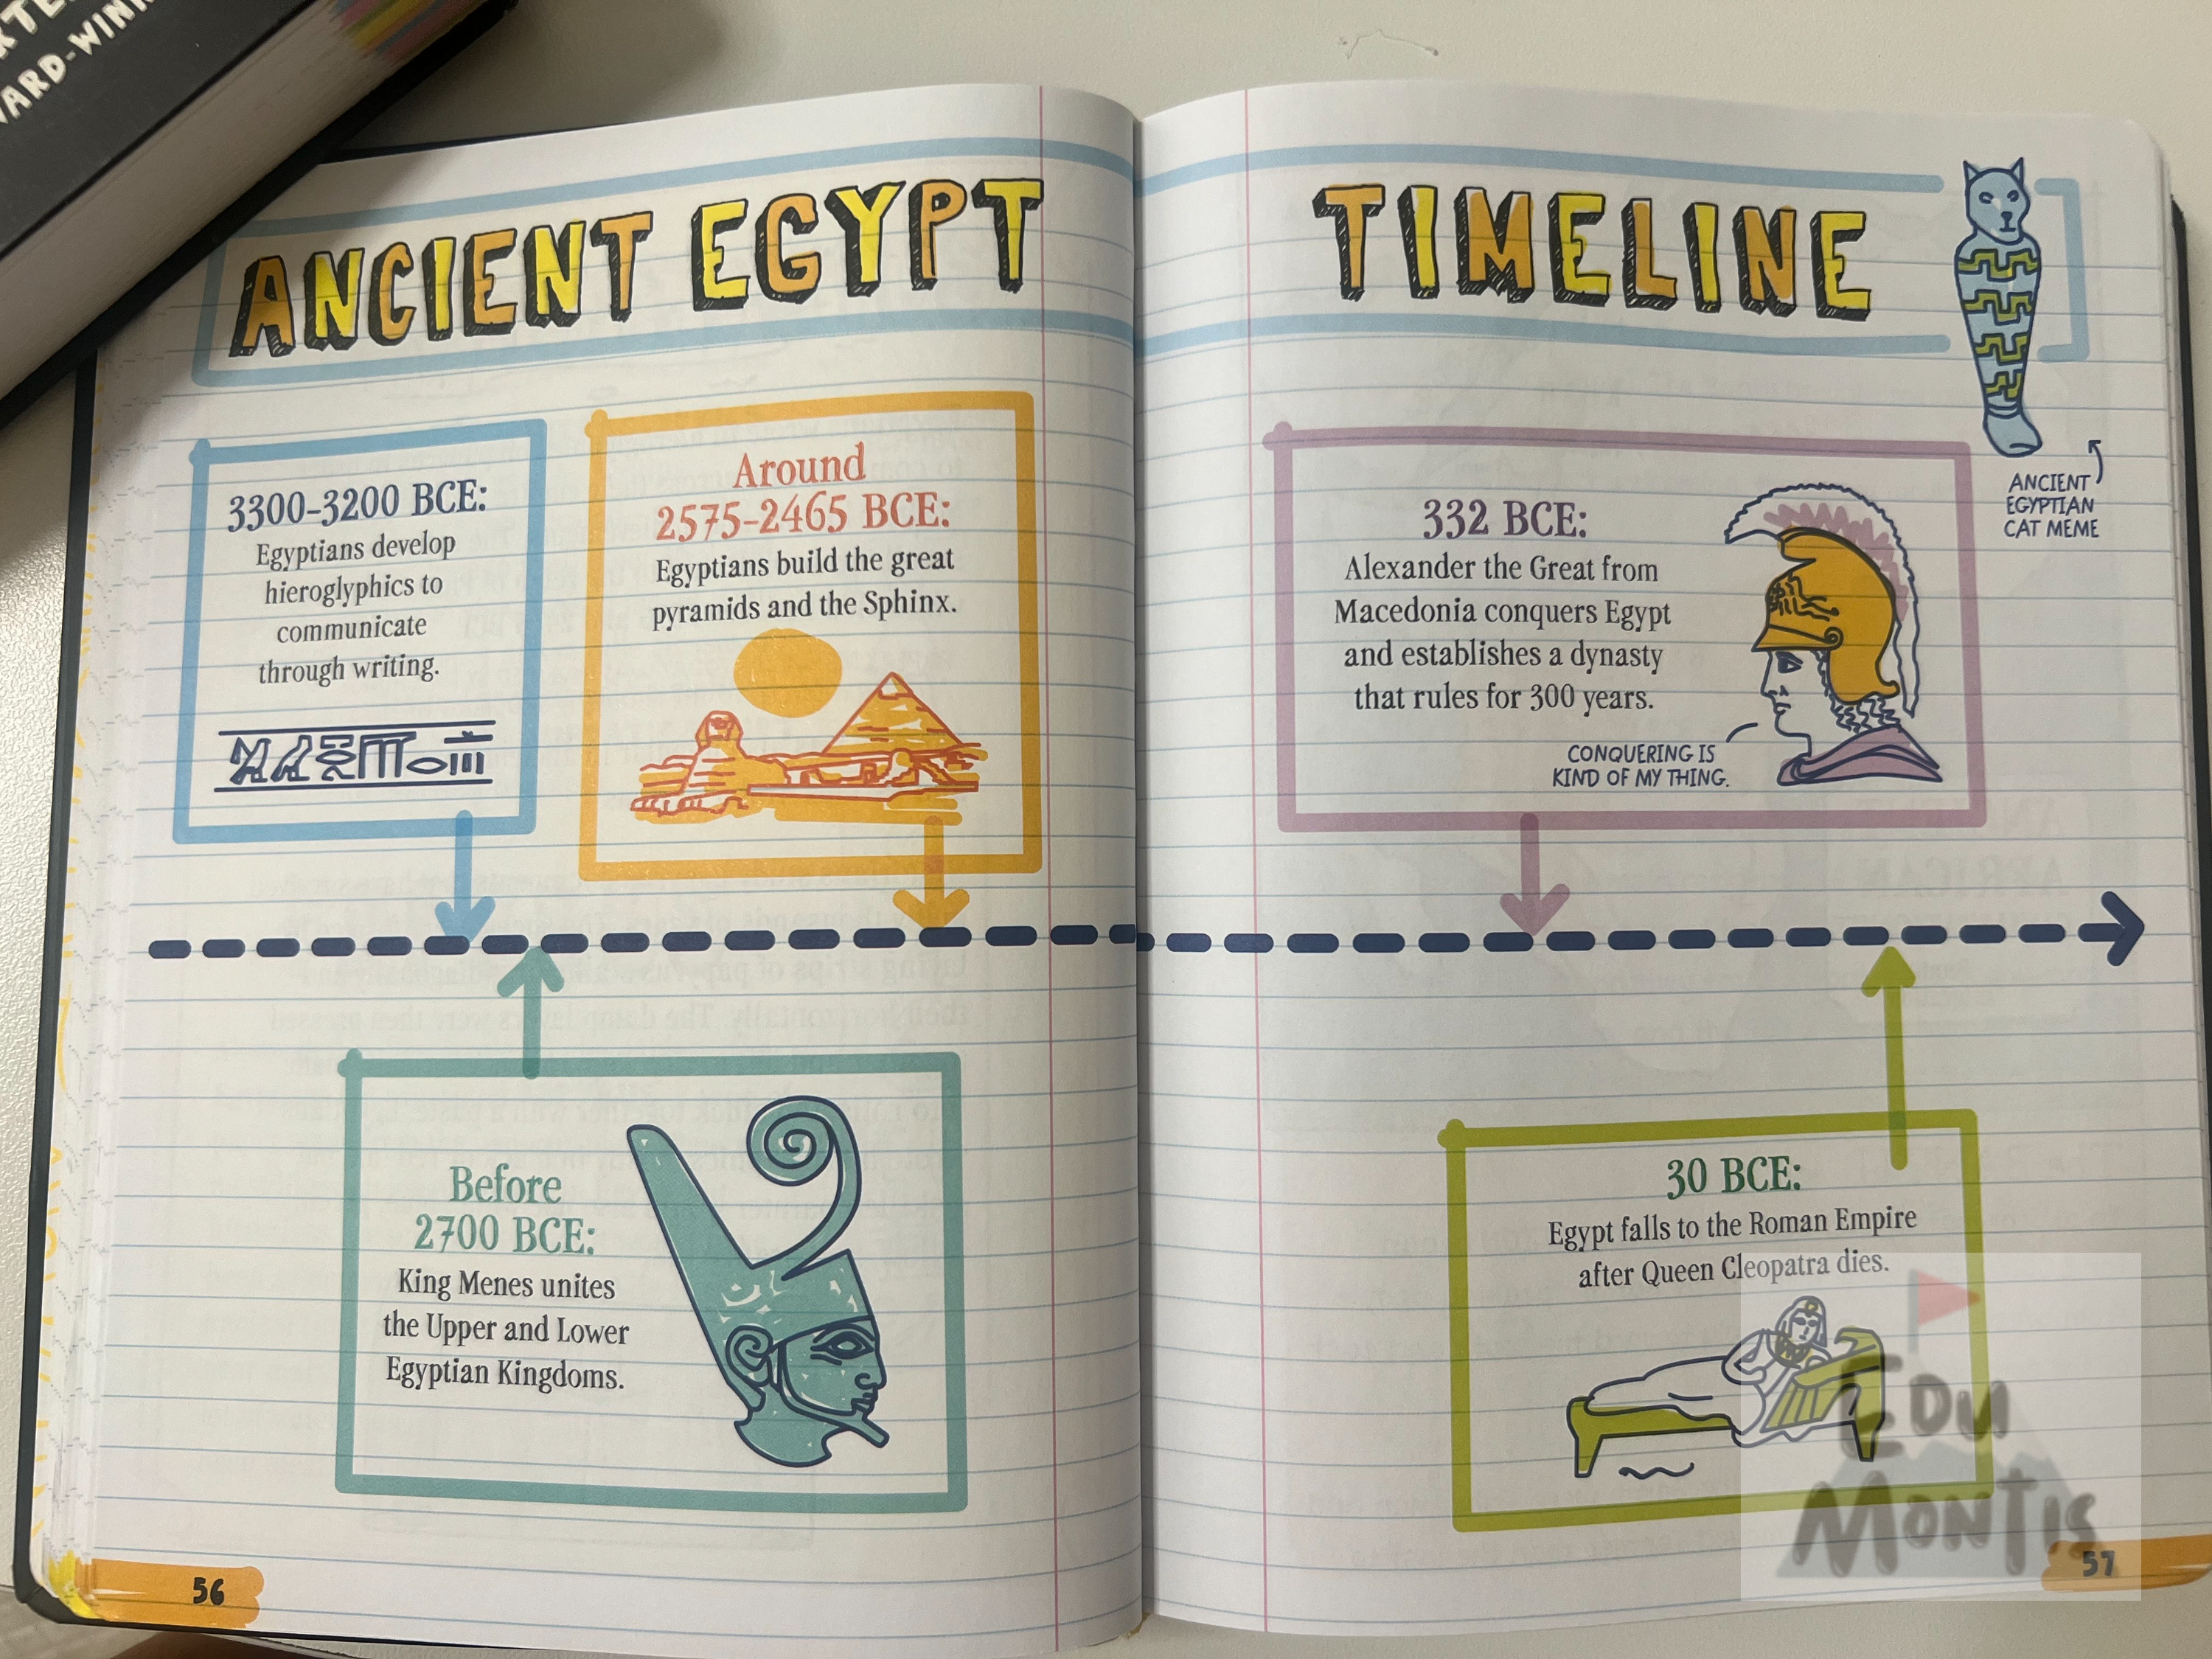 WARD-WINN
ANCIENT EGYPT TIMELINE
3300–3200 BCE:
Egyptians develop
hieroglyphics to
communicate
through writing.
Around
2575–2465 BCE:
Egyptians build the great
pyramids and the Sphinx.
Before
2700 BCE:
King Menes unites
the Upper and Lower
Egyptian Kingdoms.
56
332 BCE:
Alexander the Great from
Macedonia conquers Egypt
and establishes a dynasty
that rules for 300 years.
CONQUERING IS
KIND OF MY THING.
ANCIENT
EGYPTIAN
CAT MEME
30 BCE:
Egypt falls to the Roman Empire
after Queen Cleopatra dies.
EDU
MONTIS
57